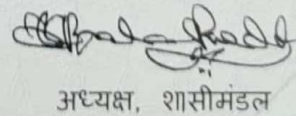 अध्यक्ष, शासीमंडल